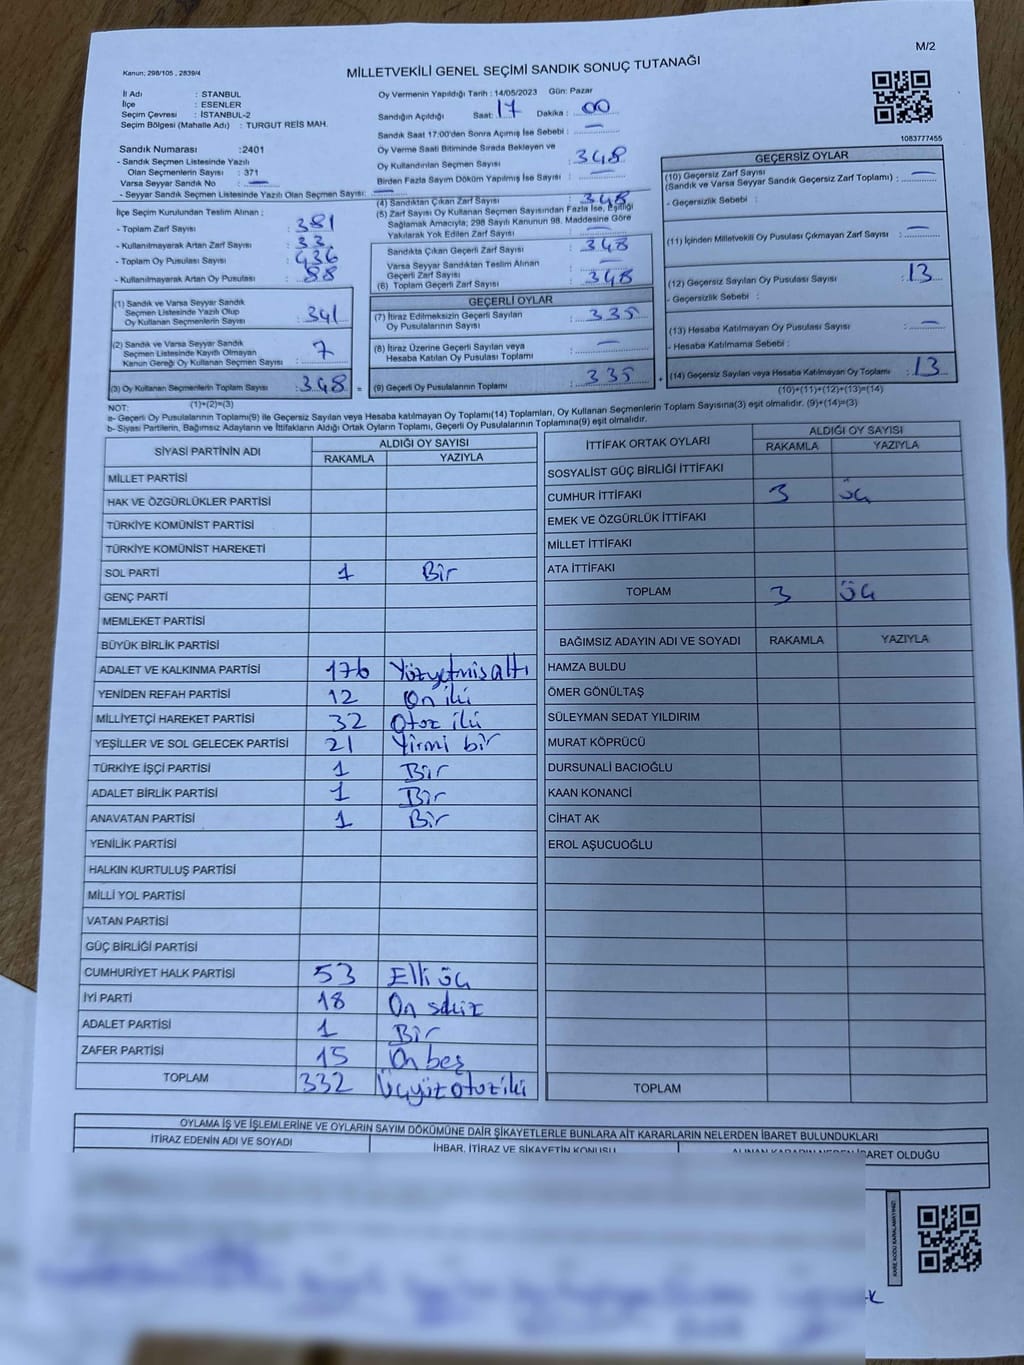 M/2
Kanun: 298/105 , 2839/4
MİLLETVEKİLİ GENEL SEÇİMİ SANDIK SONUÇ TUTANAĞI
İl Adı : STANBUL
İlçe : ESENLER
Seçim Çevresi : İSTANBUL-2
Seçim Bölgesi (Mahalle Adı) : TURGUT REİS MAH.
Sandık Numarası :2401
- Sandık Seçmen Listesinde Yazılı
Olan Seçmenlerin Sayısı : 371
Varsa Seyyar Sandık No —
- Seyyar Sandık Seçmen Listesinde Yazılı Olan Seçmen Sayısı: —
İlçe Seçim Kurulundan Teslim Alınan :
- Toplam Zarf Sayısı : 381
- Kullanılmayarak Artan Zarf Sayısı : 33
- Toplam Oy Pusulası Sayısı : 436
- Kullanılmayarak Artan Oy Pusulası : 88
(1) Sandık ve Varsa Seyyar Sandık
Seçmen Listesinde Yazılı Olup
Oy Kullanan Seçmenlerin Sayısı : 341
(2) Sandık ve Varsa Seyyar Sandık
Seçmen Listesinde Kayıtlı Olmayan
Kanun Gereği Oy Kullanan Seçmen Sayısı : 7
(3) Oy Kullanan Seçmenlerin Toplam Sayısı : 348 =
(1)+(2)=(3)
Oy Vermenin Yapıldığı Tarih : 14/05/2023 Gün: Pazar
Sandığın Açıldığı Saat: 17 Dakika : 00
Sandık Saat 17:00'den Sonra Açımış İse Sebebi : —
Oy Verme Saati Bitiminde Sırada Bekleyen ve
Oy Kullandırılan Seçmen Sayısı : 348
Birden Fazla Sayım Döküm Yapılmış İse Sayısı : —
(4) Sandıktan Çıkan Zarf Sayısı : 348
(5) Zarf Sayısı Oy Kullanan Seçmen Sayısından Fazla İse, Eşitliği
Sağlamak Amacıyla; 298 Sayılı Kanunun 98. Maddesine Göre
Yakılarak Yok Edilen Zarf Sayısı : —
Sandıkta Çıkan Geçerli Zarf Sayısı : 348
Varsa Seyyar Sandıktan Teslim Alınan
Geçerli Zarf Sayısı : —
(6) Toplam Geçerli Zarf Sayısı : 348
GEÇERLİ OYLAR
(7) İtiraz Edilmeksizin Geçerli Sayılan
Oy Pusulalarının Sayısı : 335
(8) İtiraz Üzerine Geçerli Sayılan veya
Hesaba Katılan Oy Pusulası Toplamı : —
(9) Geçerli Oy Pusulalarının Toplamı : 335 +
1083777455
GEÇERSİZ OYLAR
(10) Geçersiz Zarf Sayısı
(Sandık ve Varsa Seyyar Sandık Geçersiz Zarf Toplamı) : —
- Geçersizlik Sebebi :
(11) İçinden Milletvekili Oy Pusulası Çıkmayan Zarf Sayısı : —
(12) Geçersiz Sayılan Oy Pusulası Sayısı : 13
- Geçersizlik Sebebi :
(13) Hesaba Katılmayan Oy Pusulası Sayısı : —
- Hesaba Katılmama Sebebi :
(14) Geçersiz Sayılan veya Hesaba Katılmayan Oy Toplamı : 13
(10)+(11)+(12)+(13)=(14)
NOT:
a- Geçerli Oy Pusulalarının Toplamı(9) ile Geçersiz Sayılan veya Hesaba katılmayan Oy Toplamı(14) Toplamları, Oy Kullanan Seçmenlerin Toplam Sayısına(3) eşit olmalıdır. (9)+(14)=(3)
b- Siyasi Partilerin, Bağımsız Adayların ve İttifakların Aldığı Ortak Oyların Toplamı, Geçerli Oy Pusulalarının Toplamına(9) eşit olmalıdır.
SİYASİ PARTİNİN ADI ALDIĞI OY SAYISI
RAKAMLA YAZIYLA
MİLLET PARTİSİ
HAK VE ÖZGÜRLÜKLER PARTİSİ
TÜRKİYE KOMÜNİST PARTİSİ
TÜRKİYE KOMÜNİST HAREKETİ
SOL PARTİ 1 Bir
GENÇ PARTİ
MEMLEKET PARTİSİ
BÜYÜK BİRLİK PARTİSİ
ADALET VE KALKINMA PARTİSİ 176 Yüzyetmişaltı
YENİDEN REFAH PARTİSİ 12 On iki
MİLLİYETÇİ HAREKET PARTİSİ 32 Otuz iki
YEŞİLLER VE SOL GELECEK PARTİSİ 21 Yirmi bir
TÜRKİYE İŞÇİ PARTİSİ 1 Bir
ADALET BİRLİK PARTİSİ 1 Bir
ANAVATAN PARTİSİ 1 Bir
YENİLİK PARTİSİ
HALKIN KURTULUŞ PARTİSİ
MİLLİ YOL PARTİSİ
VATAN PARTİSİ
GÜÇ BİRLİĞİ PARTİSİ
CUMHURİYET HALK PARTİSİ 53 Elli üç
İYİ PARTİ 18 On sekiz
ADALET PARTİSİ 1 Bir
ZAFER PARTİSİ 15 On beş
TOPLAM 332 Üçyüzotuziki
İTTİFAK ORTAK OYLARI ALDIĞI OY SAYISI
RAKAMLA YAZIYLA
SOSYALİST GÜÇ BİRLİĞİ İTTİFAKI
CUMHUR İTTİFAKI 3 üç
EMEK VE ÖZGÜRLÜK İTTİFAKI
MİLLET İTTİFAKI
ATA İTTİFAKI
TOPLAM 3 üç
BAĞIMSIZ ADAYIN ADI VE SOYADI RAKAMLA YAZIYLA
HAMZA BULDU
ÖMER GÖNÜLTAŞ
SÜLEYMAN SEDAT YILDIRIM
MURAT KÖPRÜCÜ
DURSUNALİ BACIOĞLU
KAAN KONANCİ
CİHAT AK
EROL AŞUCUOĞLU
TOPLAM
OYLAMA İŞ VE İŞLEMLERİNE VE OYLARIN SAYIM DÖKÜMÜNE DAİR ŞİKAYETLERLE BUNLARA AİT KARARLARIN NELERDEN İBARET BULUNDUKLARI
İTİRAZ EDENİN ADI VE SOYADI
İHBAR, İTİRAZ VE ŞİKAYETİN KONUSU
ALINAN KARARIN NEDEN İBARET OLDUĞU
KARE KODU KARALAMAYINIZ!